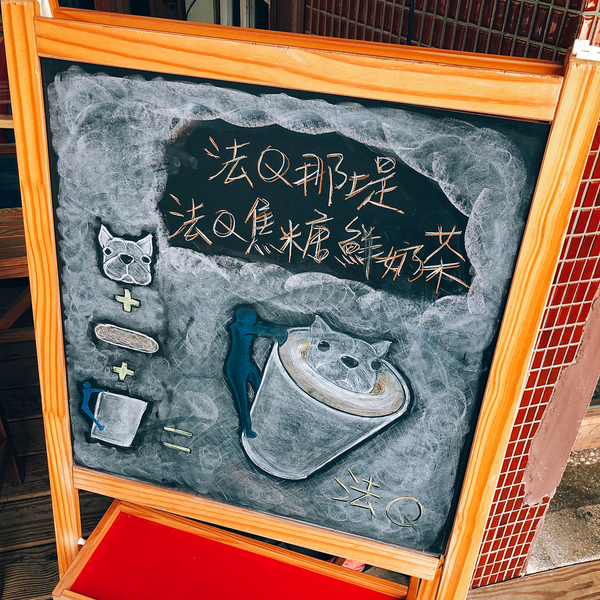 法Q那堤
法Q焦糖鮮奶茶
+
+
=
法Q